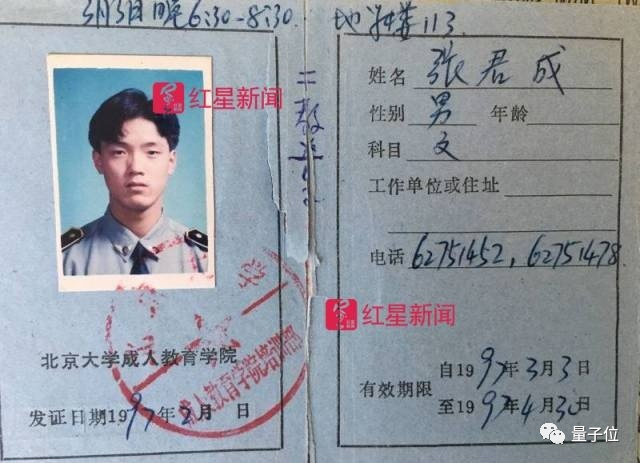 3月3日晚6:30-8:30. 地学楼113.
红星新闻
二教
北京大学成人教育学院
成人教育学院培训部
发证日期1997年2月 日
姓名 张君成
性别 男 年龄
科目 文
工作单位或住址
电话 62751452, 62751478
红星新闻
有效期限
自1997年3月3日
至1997年4月30日
量子位